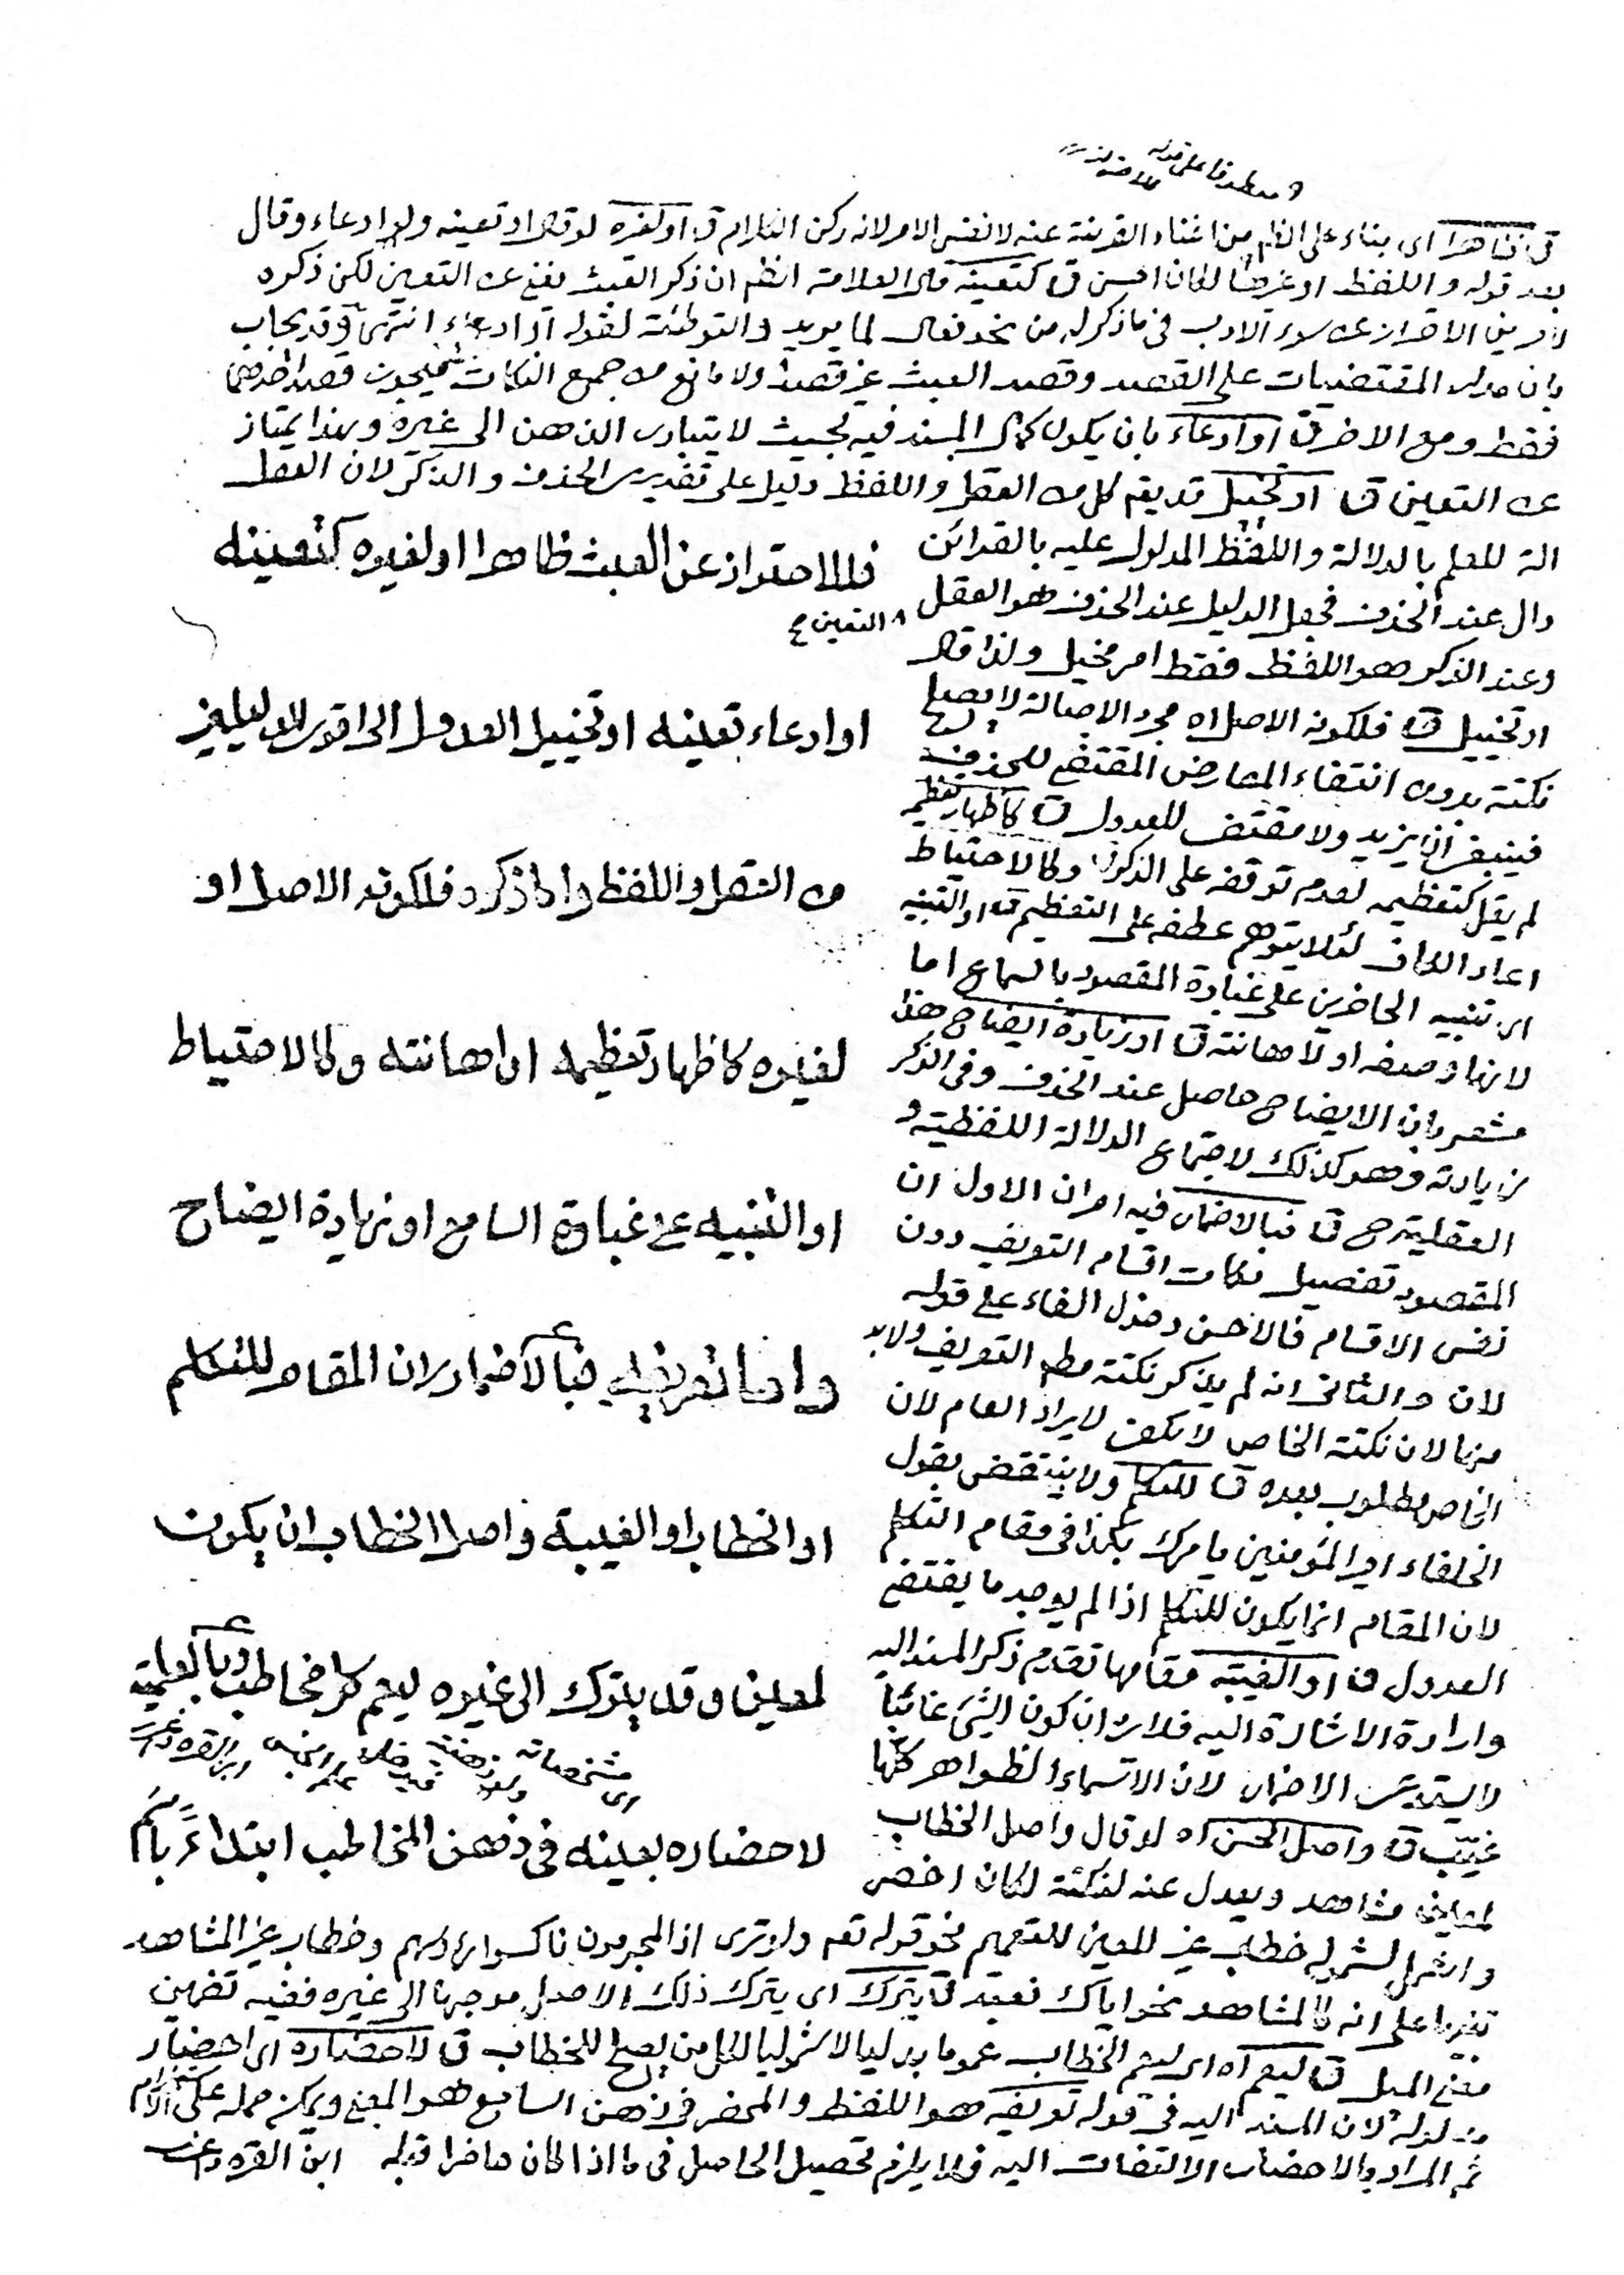 معطوفا على قوله
ق ظاهرا اى بناء على الظم من اغناء القرينة عنه لا نفس الامر لانه ركن الكلام ق او لغيره لو قال او تعينه ولو ادعاء وقال
بعد قوله واللفظ او غرضا لكان احسن ق كتعينه قال العلامة الظم ان ذكر العبث يغنى عن التعين لكن ذكره
لامرين الاحتراز عن سوء الادب فى ما ذكر له من نحو فعال لما يريد والتوطئة لقوله او ادعاء انتهى وقد يجاب
بان مدار المقتضيات على القصد وقصد العبث غير قصد ولا مانع من جميع النكات فيجوز قصد احدهما
فقط ومع الاخر ق او ادعاء بان يكون كمال المسند فيه بحيث لا يتبادر الذهن الى غيره وبهذا يمتاز
عن التعين ق او تخييل قد يقم كل من العقل واللفظ دليل على تقديرى الحذف والذكر لان العقل
الة للعلم بالدلالة واللفظ المدلول عليه بالقرائن
دال عند الحذف فجعل الدليل عند الحذف هو العقل
وعند الذكر هو اللفظ فقط امر مخيل ولذا قال
او تخييل ق فلكونه الاصل اه مجرد الاصالة لا يصلح
نكتة بدون انتفاء المعارض المقتضى للحذف
فينبغى ان يزيد ولا مقتضى للعدول ق كاظهار تعظيمه
لم يقل كتعظيمه لعدم توقفه على الذكر ق وكالاحتياط
اعاد الكاف لئلا يتوهم عطفه على التعظيم ق او التنبيه
اى تنبيه الحاضرين على غباوة المقصود بالسماع اما
لانها وصفه او لاهانته ق او زيادة ايضاح هذا
مشعر بان الايضاح حاصل عند الحذف وفى الذكر
زيادته وهو كذلك لاجتماع الدلالة اللفظية و
العقلية ح ق فبالاضمار فيه امران الاول ان
المقصود تفصيل نكات اقسام التعريف دون
نفس الاقسام فالاحسن دخول الفاء على قوله
لان والثانى انه لم يذكر نكتة مطم التعريف ولابد
منها لان نكتة الخاص لا يكفى لايراد العام لان
الخاص مطلوب بعده ق للتكلم ولا ينتقض بقول
الخلفاء امير المؤمنين يامرك بكذا فى مقام التكلم
لان المقام انما يكون للتكلم اذا لم يوجد ما يقتضى
العدول ق او الغيبة مقامها تقدم ذكر المسند اليه
وارادة الاشارة اليه فلا يرد ان كون الشئ غائبا
لا يستدعى الاضمار لان الاسماء الظواهر كلها
غيّب ق واصل الحسن اه لو قال واصل الخطاب
لمعاين مشاهد ويعدل عنه لنكتة لكان اخصر
فللاحتراز عن العبث ظاهرا او لغيره كتعينه
التعين م
او ادعاء تعينه او تخييل العدول الى اقوى الدليلين
من العقل واللفظ واما ذكره فلكونه الاصل او
لغيره كاظهار تعظيمه او اهانته وكالاحتياط
او التنبيه على غباوة السامع او زيادة ايضاح
واما تعريفه فبالاضمار لان المقام للتكلم
او الخطاب او الغيبة واصل الخطاب ان يكون
لمعين وقد يترك الى غيره ليعم كل مخاطب وبالعلمية
اى مشخصاته
ابن القره داغى
لاحضاره بعينه فى ذهن المخاطب ابتداءً باسم
واشمل لشموله خطاب غير المعين للتعميم نحو قوله تعم ولو ترى اذ المجرمون ناكسوا رؤسهم وخطاب غير المشاهد
تنزيها على انه كالمشاهد نحو اياك نعبد ق يترك اى يترك ذلك الاصل موجها الى غيره ففيه تضمين
معنى الميل ق ليعم اه اى ليعم الخطاب عموما بدليا لا شموليا لكل من يصلح للخطاب ق لاحضاره اى احضار
مدلوله لان المسند اليه فى قوله تعريفه هو اللفظ والمحضر فى ذهن السامع هو المعنى ويمكن حمله على
ثم المراد بالاحضار الالتفات اليه فلا يلزم تحصيل الحاصل فى ما اذا كان حاضرا قبله ابن القره داغى